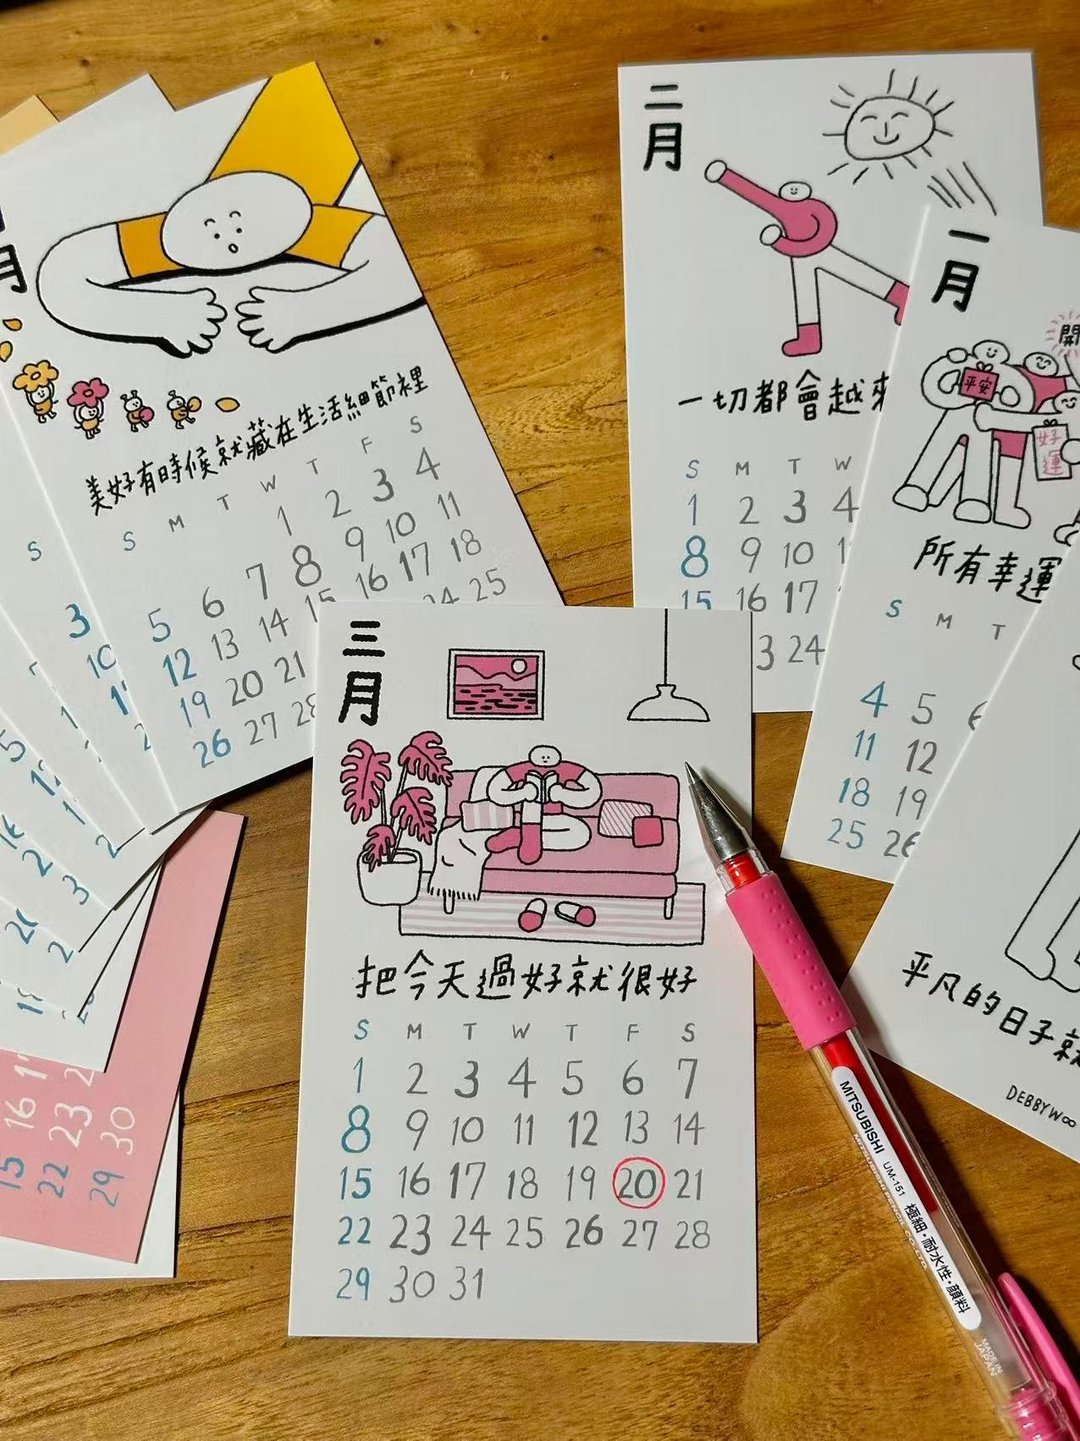 月
美好有時候就藏在生活細節裡
S M T W T F S
1 2 3 4
5 6 7 8 9 10 11
12 13 14 15 16 17 18
19 20 21 24 25
26 27 28
二月
一切都會越來
S M T W
1 2 3 4
8 9 10
15 16 17
3 24
一月
平安
好運
所有幸運
S M T
4 5
11 12
18 19
25 26
三月
把今天過好就很好
S M T W T F S
1 2 3 4 5 6 7
8 9 10 11 12 13 14
15 16 17 18 19 20 21
22 23 24 25 26 27 28
29 30 31
平凡的日子就
DEBBYW∞
MITSUBISHI UM-151 極細・耐水性・顔料
MADE IN JAPAN
S
3
10
16 17
23
30
15
22
29